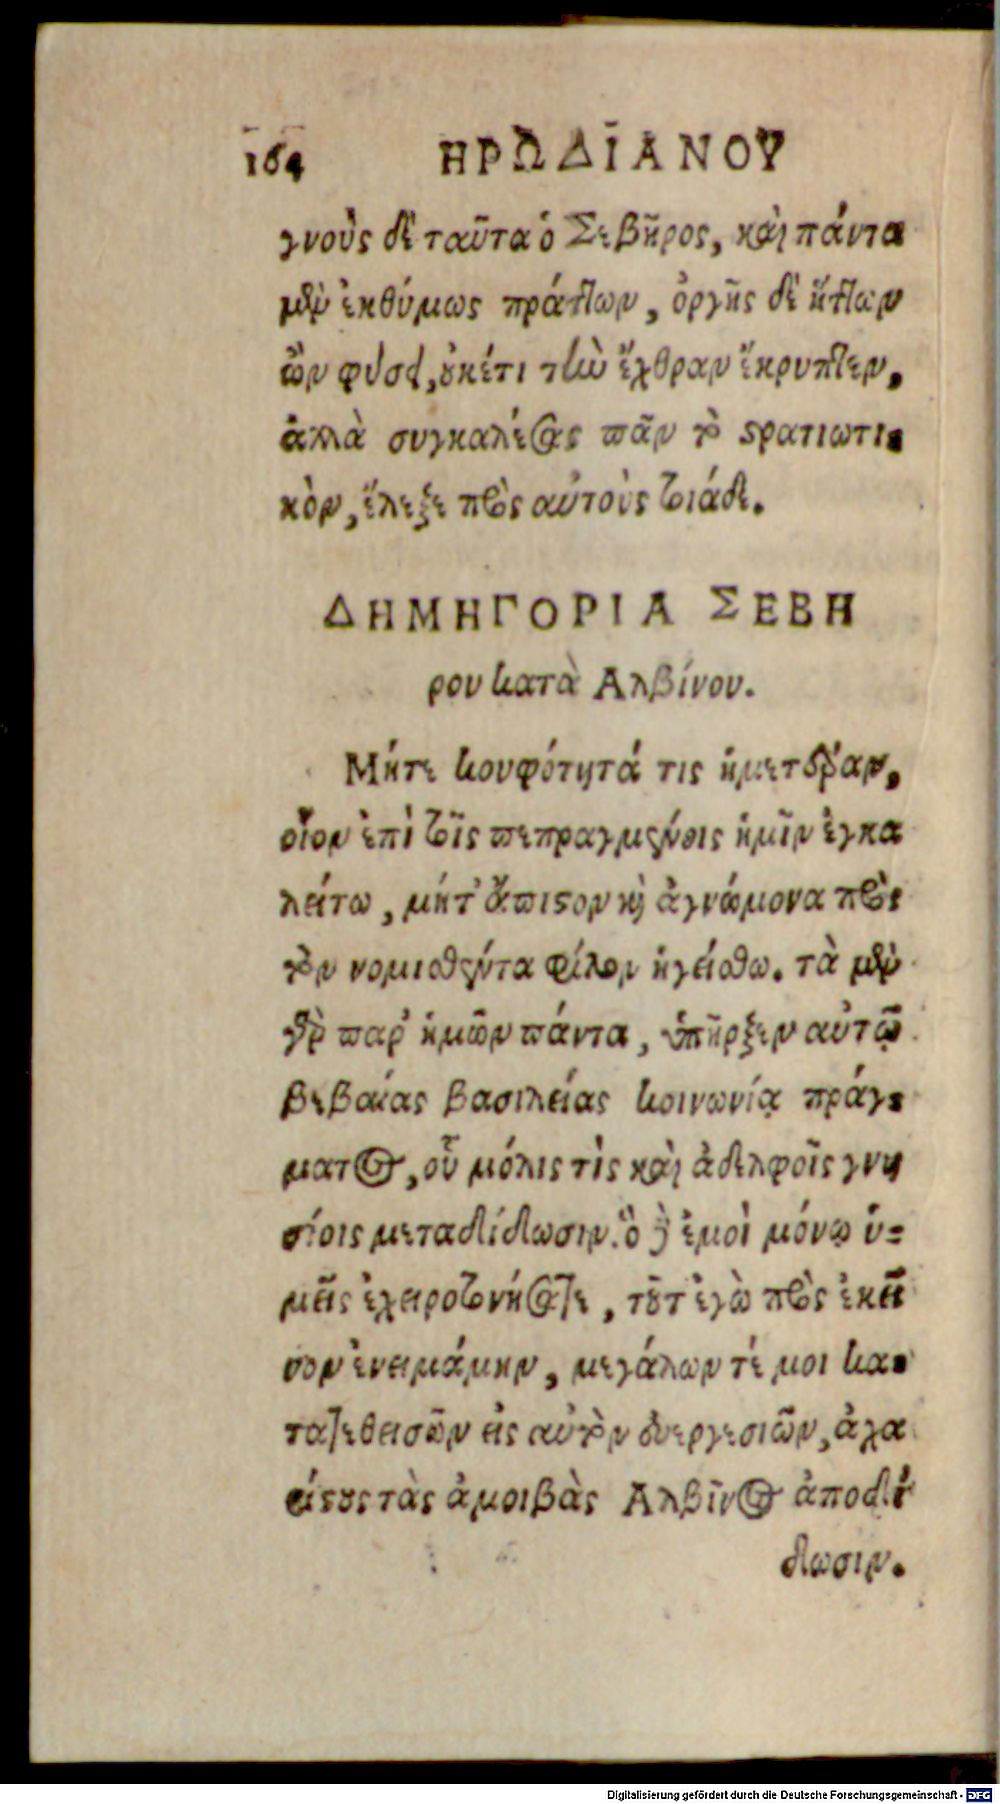 164 ΗΡΩΔΙΑΝΟΥ
γνοὺς δὲ ταῦτα ὁ Σεβῆρος, καὶ πάντα
μὲν ἐκθύμως πράττων, ὀργῆς δὲ ἥττων
ὢν φύσει, οὐκέτι τὴν ἔχθραν ἔκρυπτεν,
ἀλλὰ συγκαλέσας πᾶν τὸ στρατιωτι-
κὸν, ἔλεξε πρὸς αὐτοὺς τοιάδε.
ΔΗΜΗΓΟΡΙΑ ΣΕΒΗ
ρου κατὰ Αλβίνου.
Μήτε κουφότητά τις ἡμετέραν,
οἷον ἐπὶ τοῖς πεπραγμένοις ἡμῖν ἐγκα
λείτω, μήτ' ἄπιστον καὶ ἀγνώμονα πρὸς
τὸν νομισθέντα φίλον ἡγείσθω. τὰ μὲν
γὰρ παρ' ἡμῶν πάντα, ὑπῆρξεν αὐτῷ
βεβαίας βασιλείας κοινωνίᾳ πράγ-
ματος, οὗ μόλις τὶς καὶ ἀδελφοῖς γνη
σίοις μεταδίδωσιν. ὃ δὲ ἐμοὶ μόνῳ ὑ-
μεῖς ἐχειροτονήσατε, τοῦτ ἐγὼ πρὸς ἐκεῖ
νον ἐνειμάμην, μεγάλων τέ μοι κα-
τατεθεισῶν εἰς αὐτὸν εὐεργεσιῶν, ἀχα
ρίστους τὰς ἀμοιβὰς Αλβῖνος ἀποδί
δωσιν.
Digitalisierung gefördert durch die Deutsche Forschungsgemeinschaft - DFG